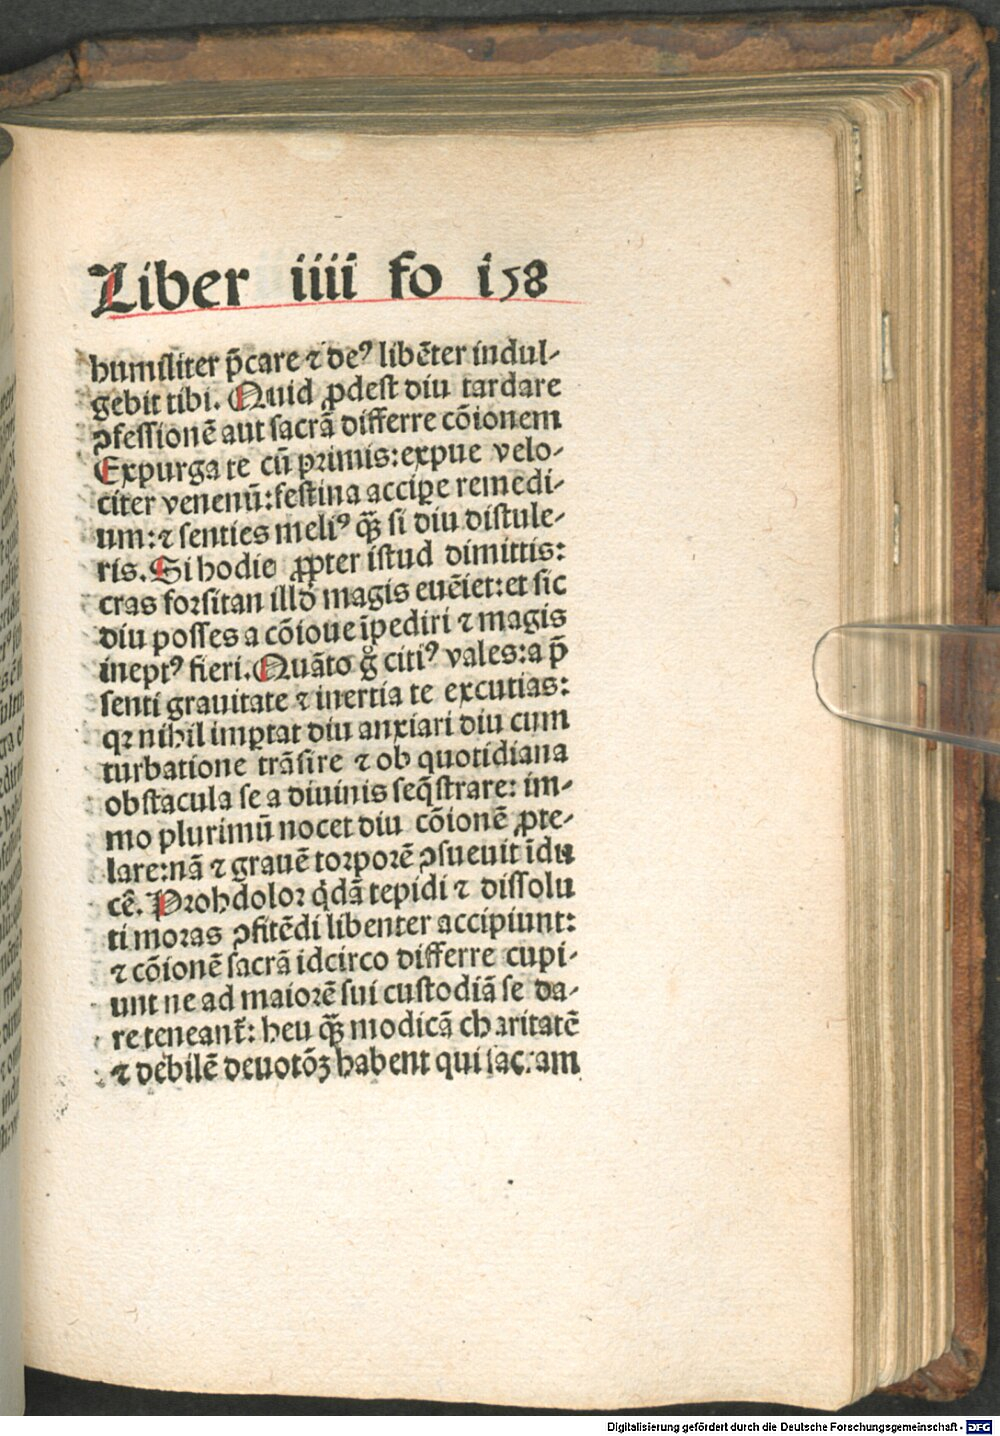 Liber iiii fo 158
humiliter p̄care ⁊ deꝰ libēter indul-
gebit tibi. Quid ꝓdest diu tardare
ꝯfessionē aut sacrā differre cōionem
Expurga te cū primis: expue velo-
citer venenū: festina accipe remedi-
um: ⁊ senties meliꝰ q̄ꝫ si diu distule-
ris. Si hodie ꝓpter istud dimittis:
cras forsitan illḋ magis euēiet: et sic
diu posses a cōioue īpediri ⁊ magis
ineptꝰ fieri. Quāto g̊ citiꝰ vales: a p̄
senti grauitate ⁊ inertia te excutias:
qꝛ nihil imꝑtat diu anxiari diu cum
turbatione trāsire ⁊ ob quotidiana
obstacula se a diuinis seq̄strare: im-
mo plurimū nocet diu cōionē ꝓte-
lare: nā ⁊ grauē torporē ꝯsueuit īdu
cē. Proh dolor q̇dā tepidi ⁊ dissolu
ti moras ꝯfitēdi libenter accipiunt:
⁊ cōionē sacrā idcirco differre cupi-
unt ne ad maiorē sui custodiā se da-
re teneant᷑: heu q̄ꝫ modicā charitatē
⁊ debilē deuotōꝫ habent qui sacram
Digitalisierung gefördert durch die Deutsche Forschungsgemeinschaft - DFG